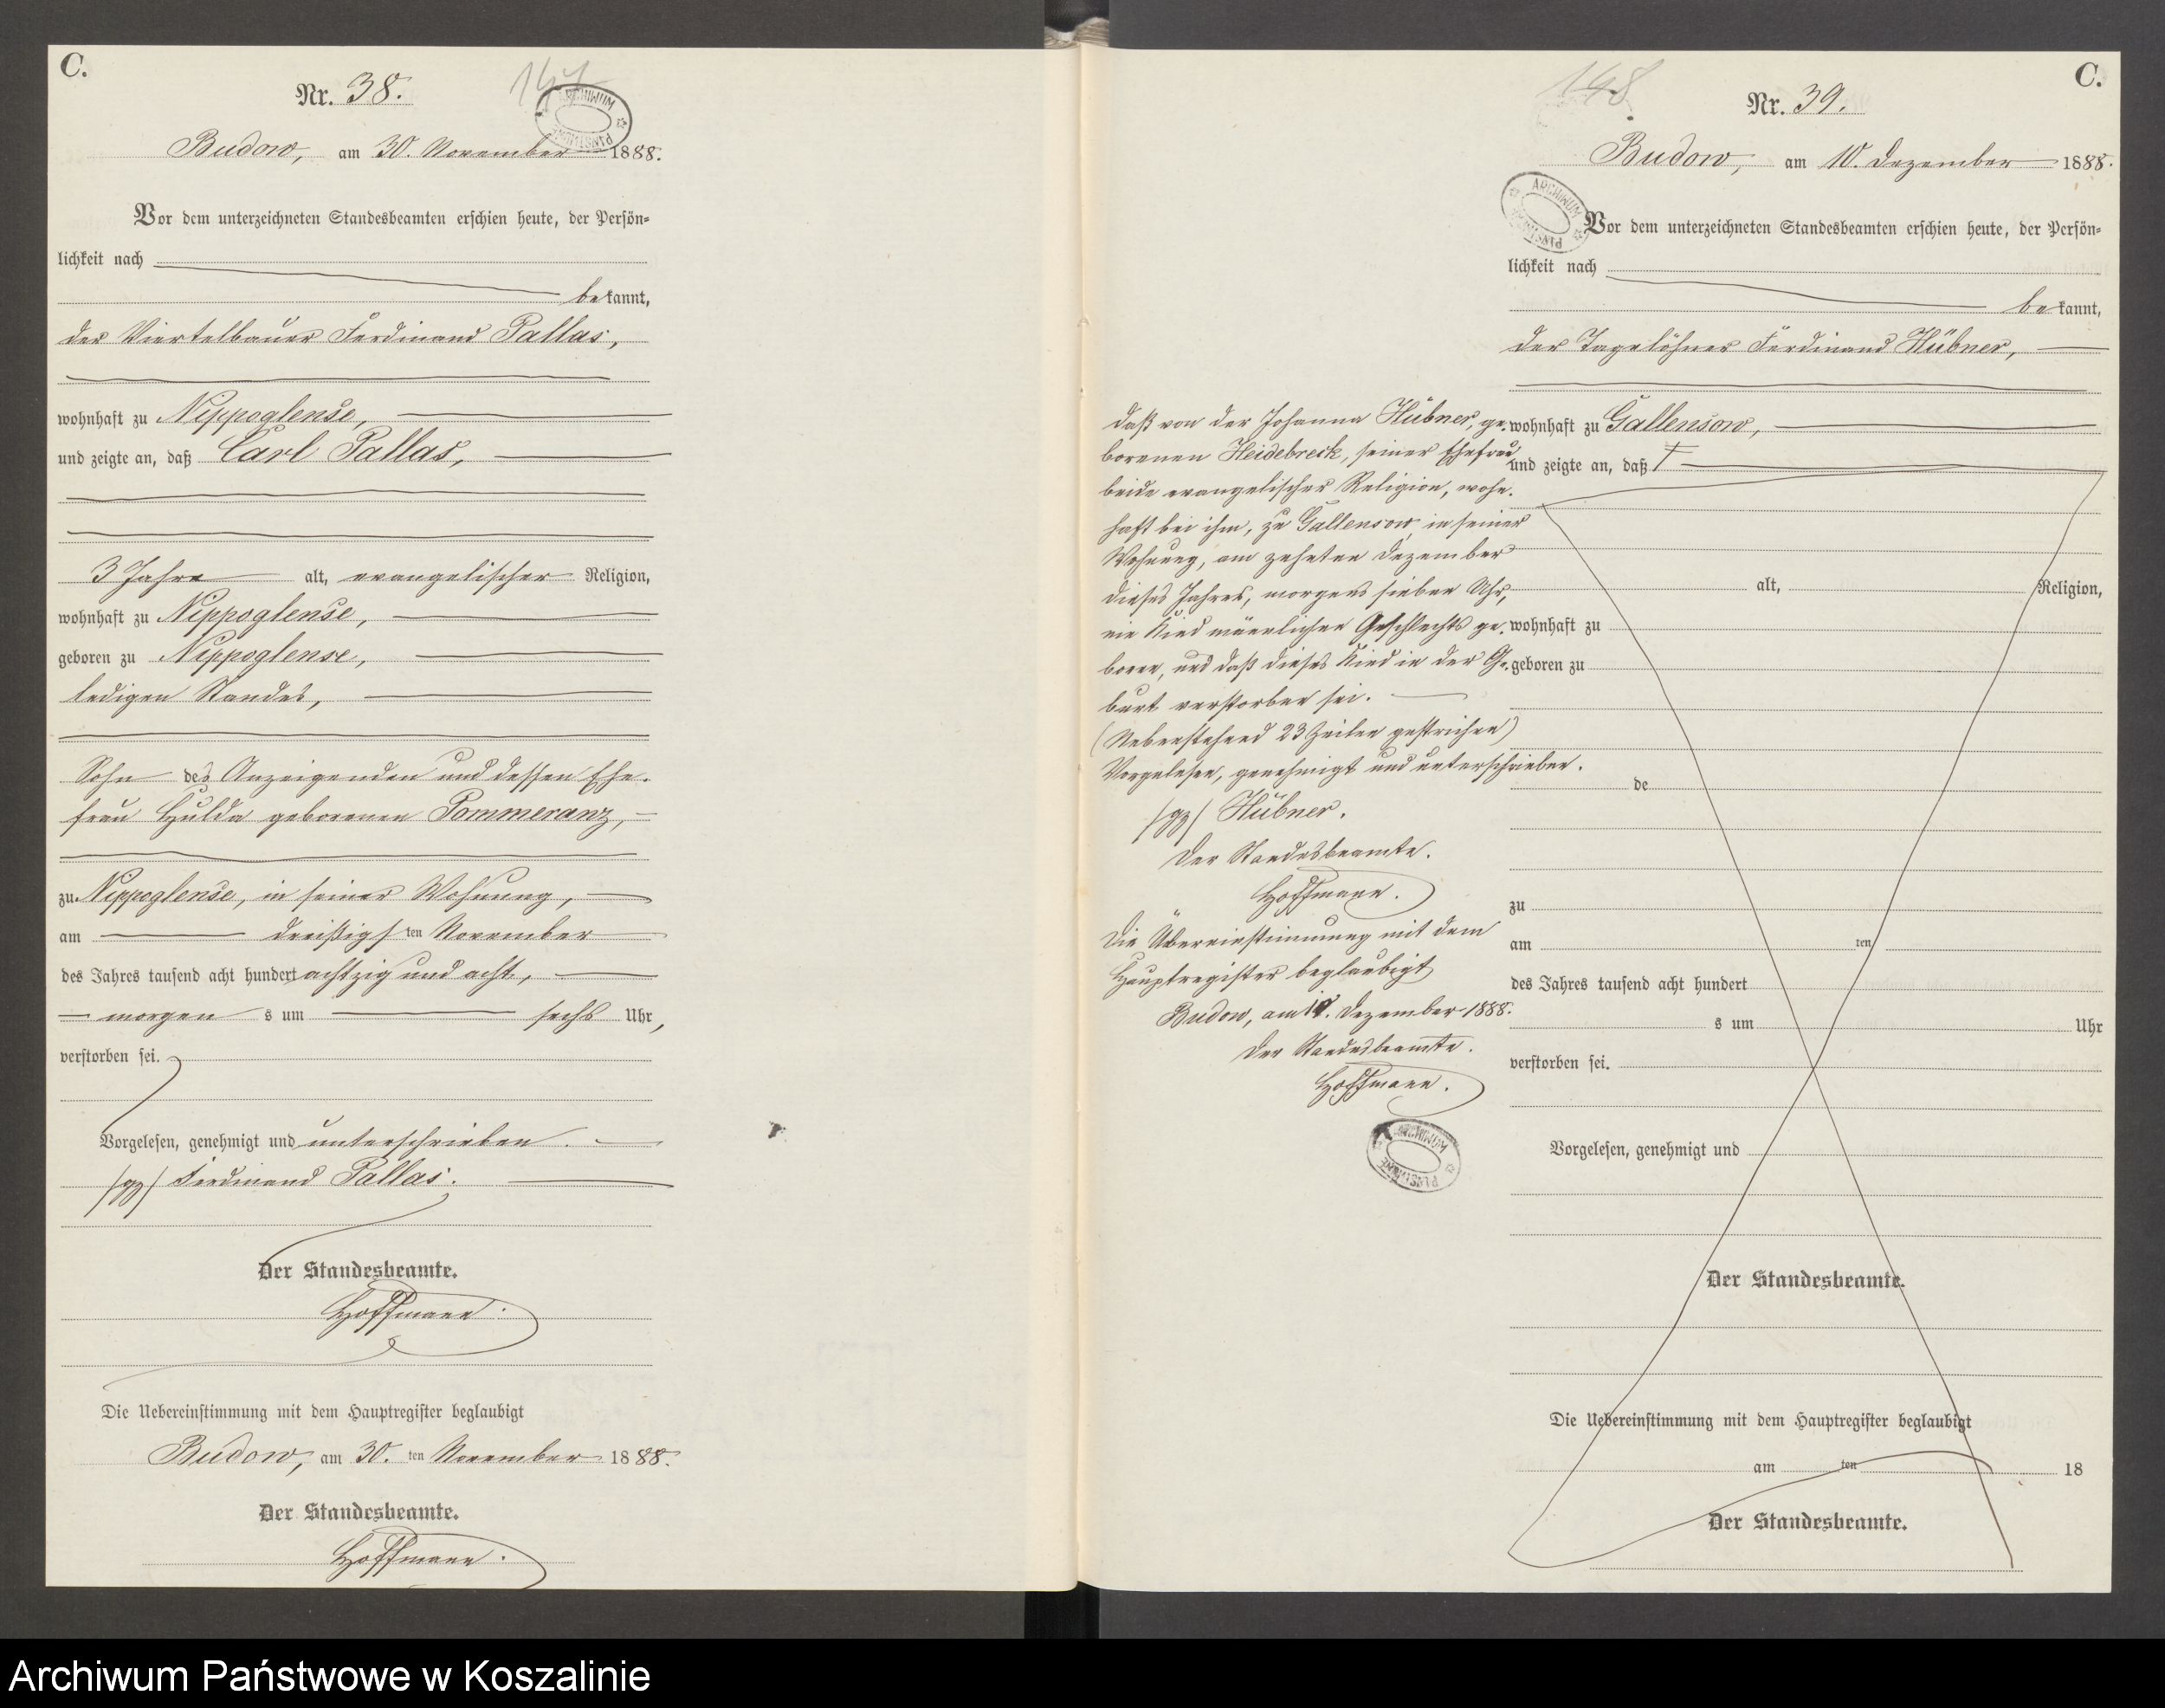 C.
147
Nr. 38.
ARCHIWUM PAŃSTWOWE
Budow, am 30. November 1888.
Vor dem unterzeichneten Standesbeamten erschien heute, der Persön-
lichkeit nach
bekannt,
der Viertelbauer Ferdinand Pallas,
wohnhaft zu Nippoglense,
und zeigte an, daß Carl Pallas,
3 Jahre alt, evangelischer Religion,
wohnhaft zu Nippoglense,
geboren zu Nippoglense,
ledigen Standes,
Sohn des Anzeigenden und dessen Ehe-
frau Hulda geborenen Pommeranz,
zu Nippoglense, in seiner Wohnung,
am dreißigsten November
des Jahres tausend acht hundert achtzig und acht,
morgens um sechs Uhr,
verstorben sei.
Vorgelesen, genehmigt und unterschrieben.
/gz/ Ferdinand Pallas.
Der Standesbeamte.
Hoffmann.
Die Uebereinstimmung mit dem Hauptregister beglaubigt
Budow, am 30. ten November 1888.
Der Standesbeamte.
Hoffmann.
C.
148
Nr. 39.
Budow, am 10. Dezember 1888.
ARCHIWUM PAŃSTWOWE
Vor dem unterzeichneten Standesbeamten erschien heute, der Persön-
lichkeit nach
bekannt,
der Tagelöhner Ferdinand Hübner,
wohnhaft zu Gallensow,
und zeigte an, daß
alt, Religion,
wohnhaft zu
geboren zu
de
zu
am ten
des Jahres tausend acht hundert
s um Uhr
verstorben sei.
Vorgelesen, genehmigt und
Der Standesbeamte.
Die Uebereinstimmung mit dem Hauptregister beglaubigt
am ten 18
Der Standesbeamte.
daß von der Johanna Hübner, ge-
borenen Heidebreck, seiner Ehefrau
beide evangelischer Religion, wohn-
haft bei ihm, zu Gallensow in seiner
Wohnung, am zehnten Dezember
dieses Jahres, morgens sieben Uhr,
ein Kind männlichen Geschlechts ge-
boren, und daß dieses Kind in der Ge-
burt verstorben sei.
(Nebenstehend 23 Zeilen gestrichen)
Vorgelesen, genehmigt und unterschrieben.
/gz/ Hübner.
Der Standesbeamte.
Hoffmann.
Die Übereinstimmung mit dem
Hauptregister beglaubigt
Budow, am 10. Dezember 1888.
Der Standesbeamte.
Hoffmann.
ARCHIWUM PAŃSTWOWE
Archiwum Państwowe w Koszalinie